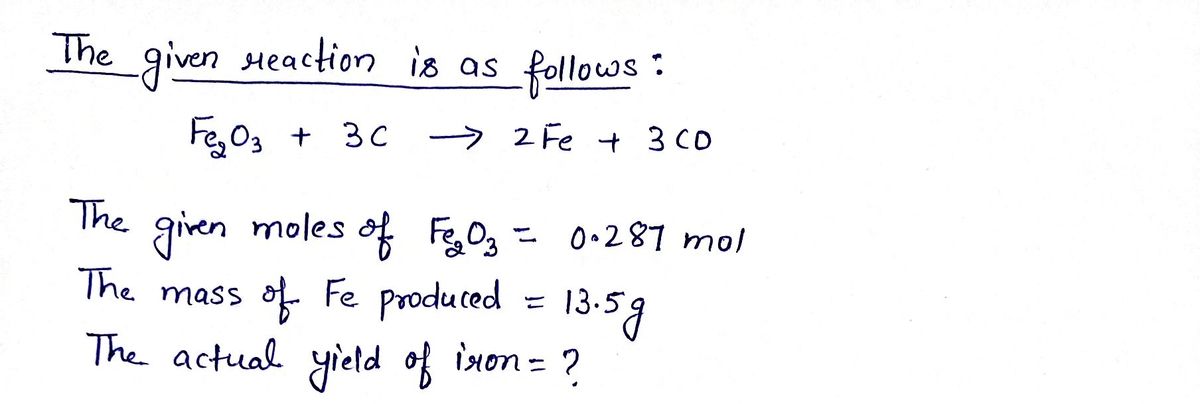 The given reaction is as follows:
Fe₂O₃ + 3C → 2Fe + 3CO
The given moles of Fe₂O₃ = 0.287 mol
The mass of Fe produced = 13.5g
The actual yield of iron = ?